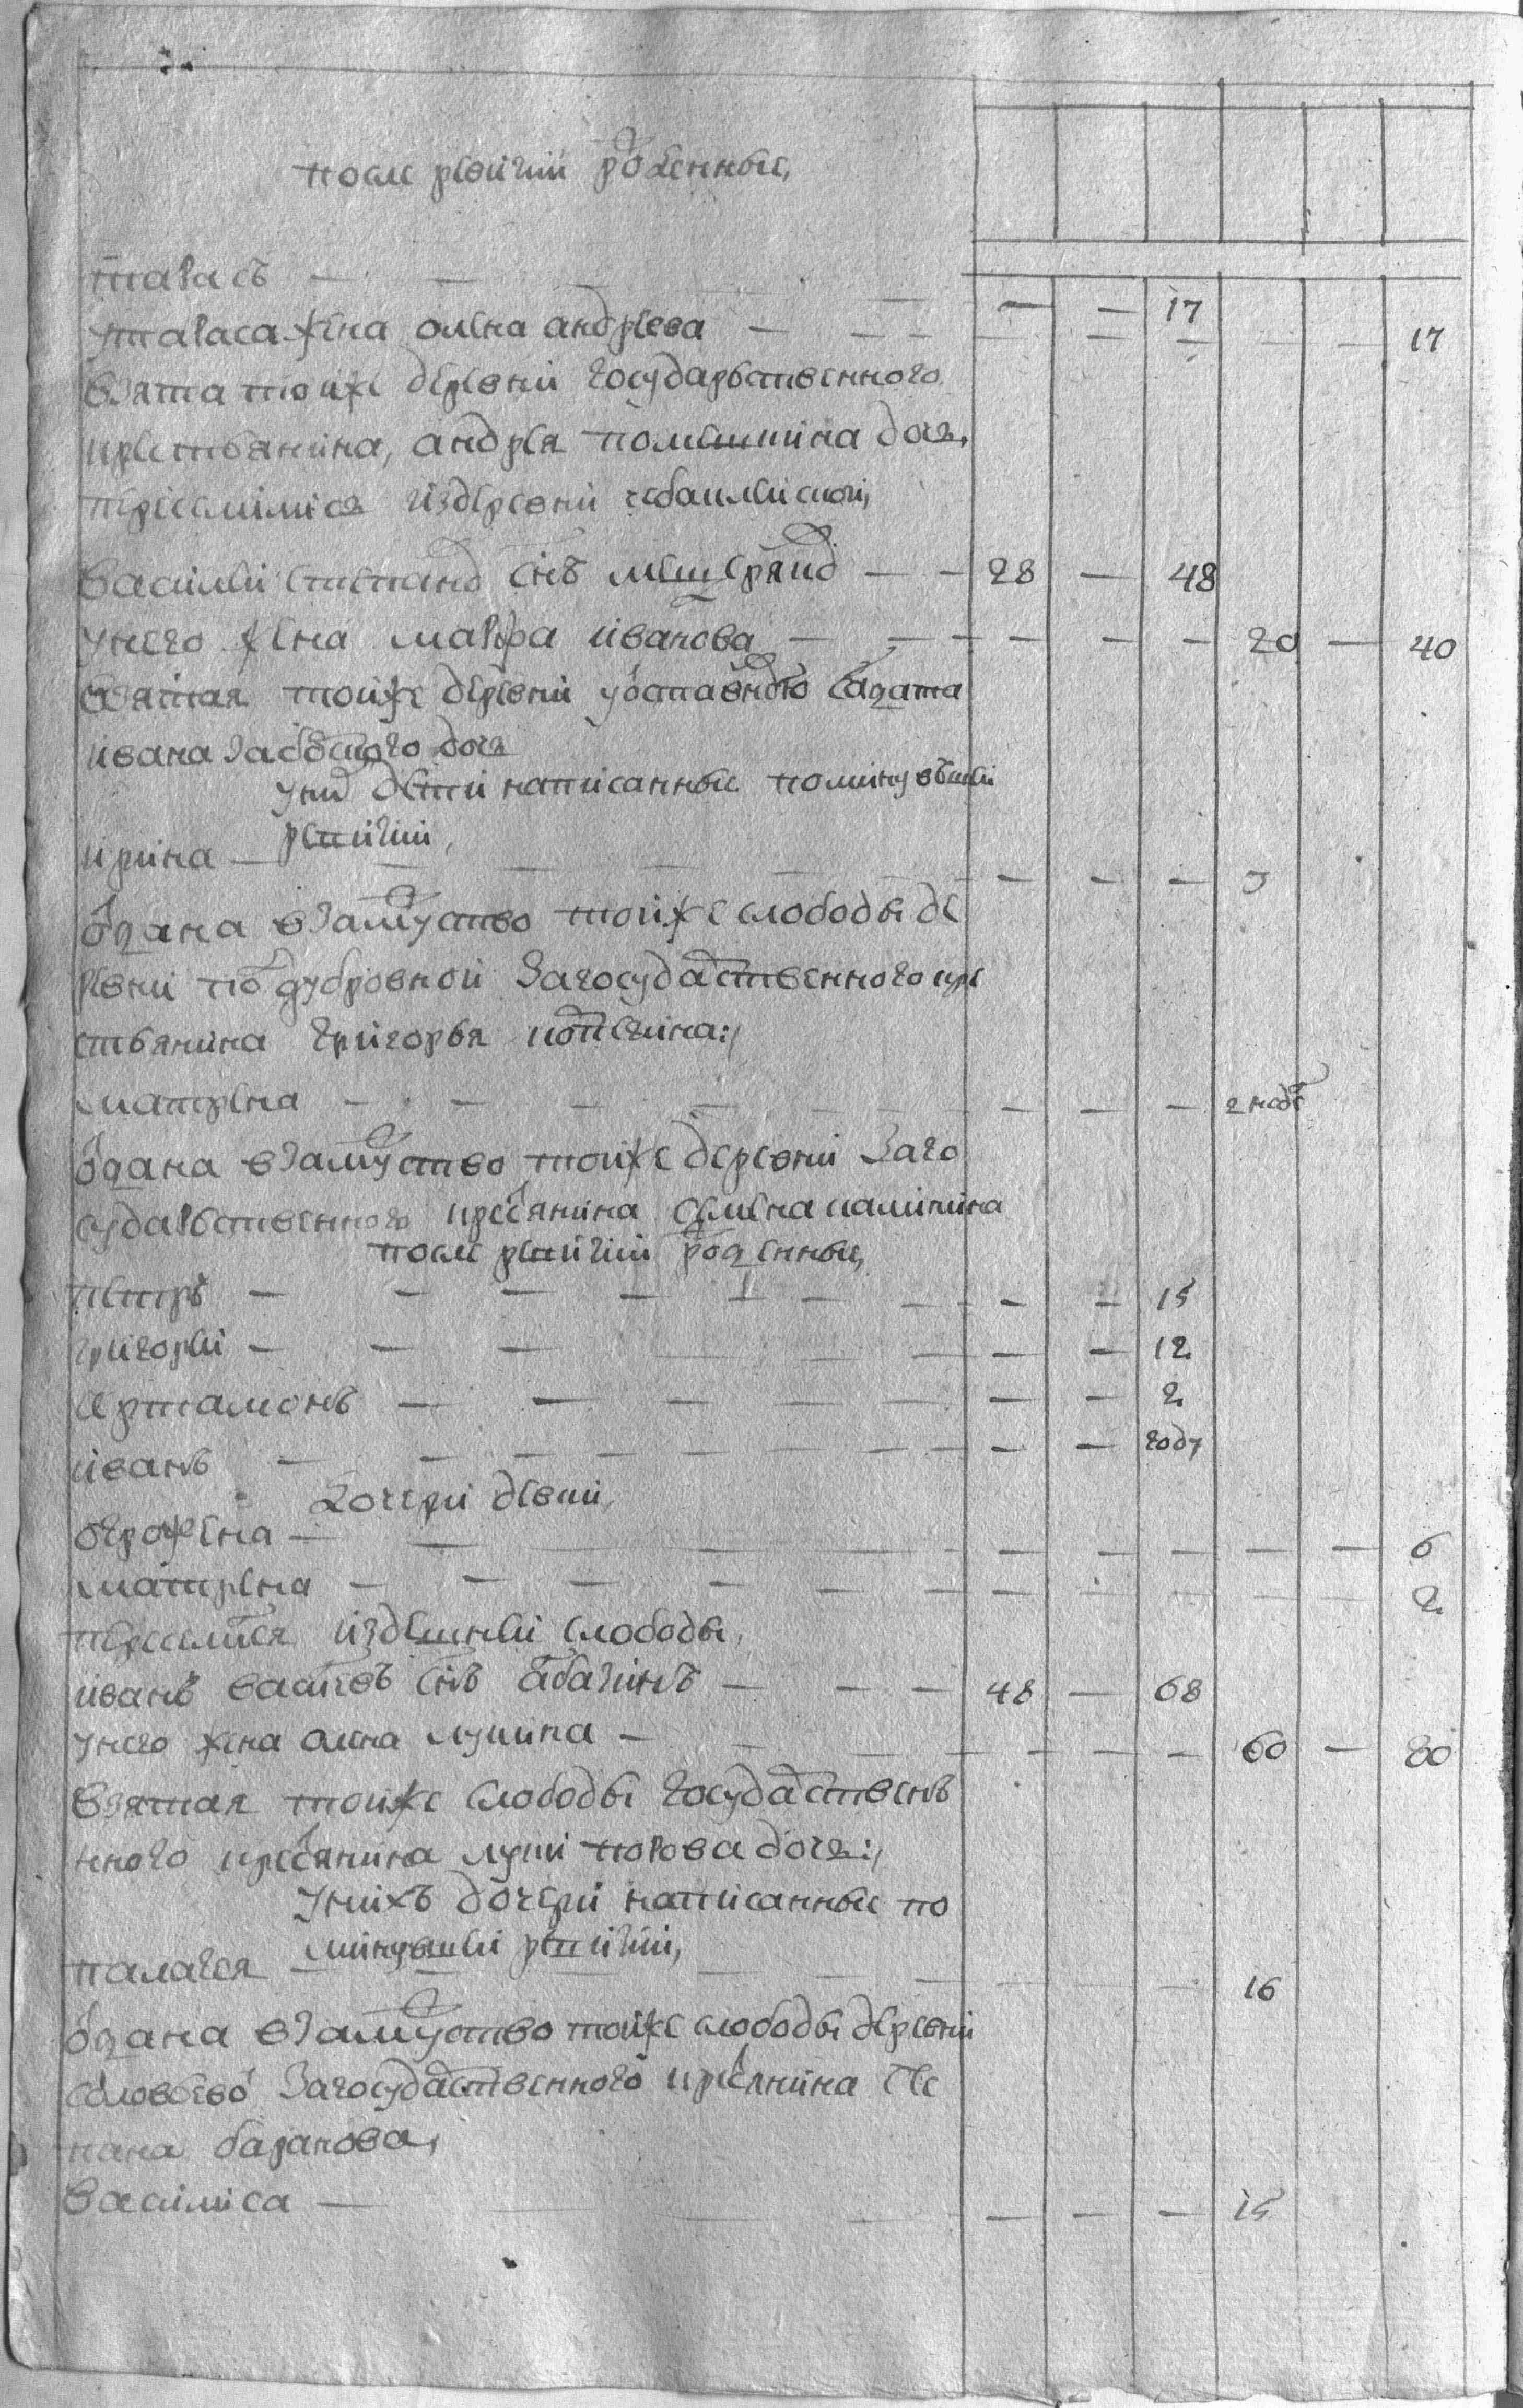 после ревизии рожденные,
тарасъ — — — — 17
утараса жена олена андреева — — — 17
взята тойже деревни государственного
крестьянина, андрея дочь,
издеревни
василей степановъ снъ мещеряковъ — — 28 — 48
унего жена мавра иванова — — — — — 20 — 40
взятая тойже деревни отставного салдата
ивана дочь
унихъ дети написанные поминувшей
ревизии,
ирина — — — — — 3
одана взамужство тойже слободы де
ревни подубровной загосударственного кре
стьянина григорья
матрена — — — — — 2 недѣ
одана взамужство тойже деревни заго
сударственного крестьянина семена калинина
после ревизии рожденные,
петръ — — — — — — 15
григорей — — — — — 12
артамонъ — — — — — 2
иванъ — — — — — году
дочери девки,
огрофена — — — — — — 6
матрена — — — — — — 2
переселился издешней слободы,
иванъ васильевъ снъ абакинъ — — — 48 — 68
унего жена олена лукина — — — — 60 — 80
взятая тойже слободы государственъ
ного крестьянина луки попова дочь:,
унихъ дочери написанные по
минувшей ревизии,
палагея — — — — — 16
одана взамужство тойже слободы деревни
соловьево загосударственного крестьянина сте
пана баранова,
василиса — — — — 15